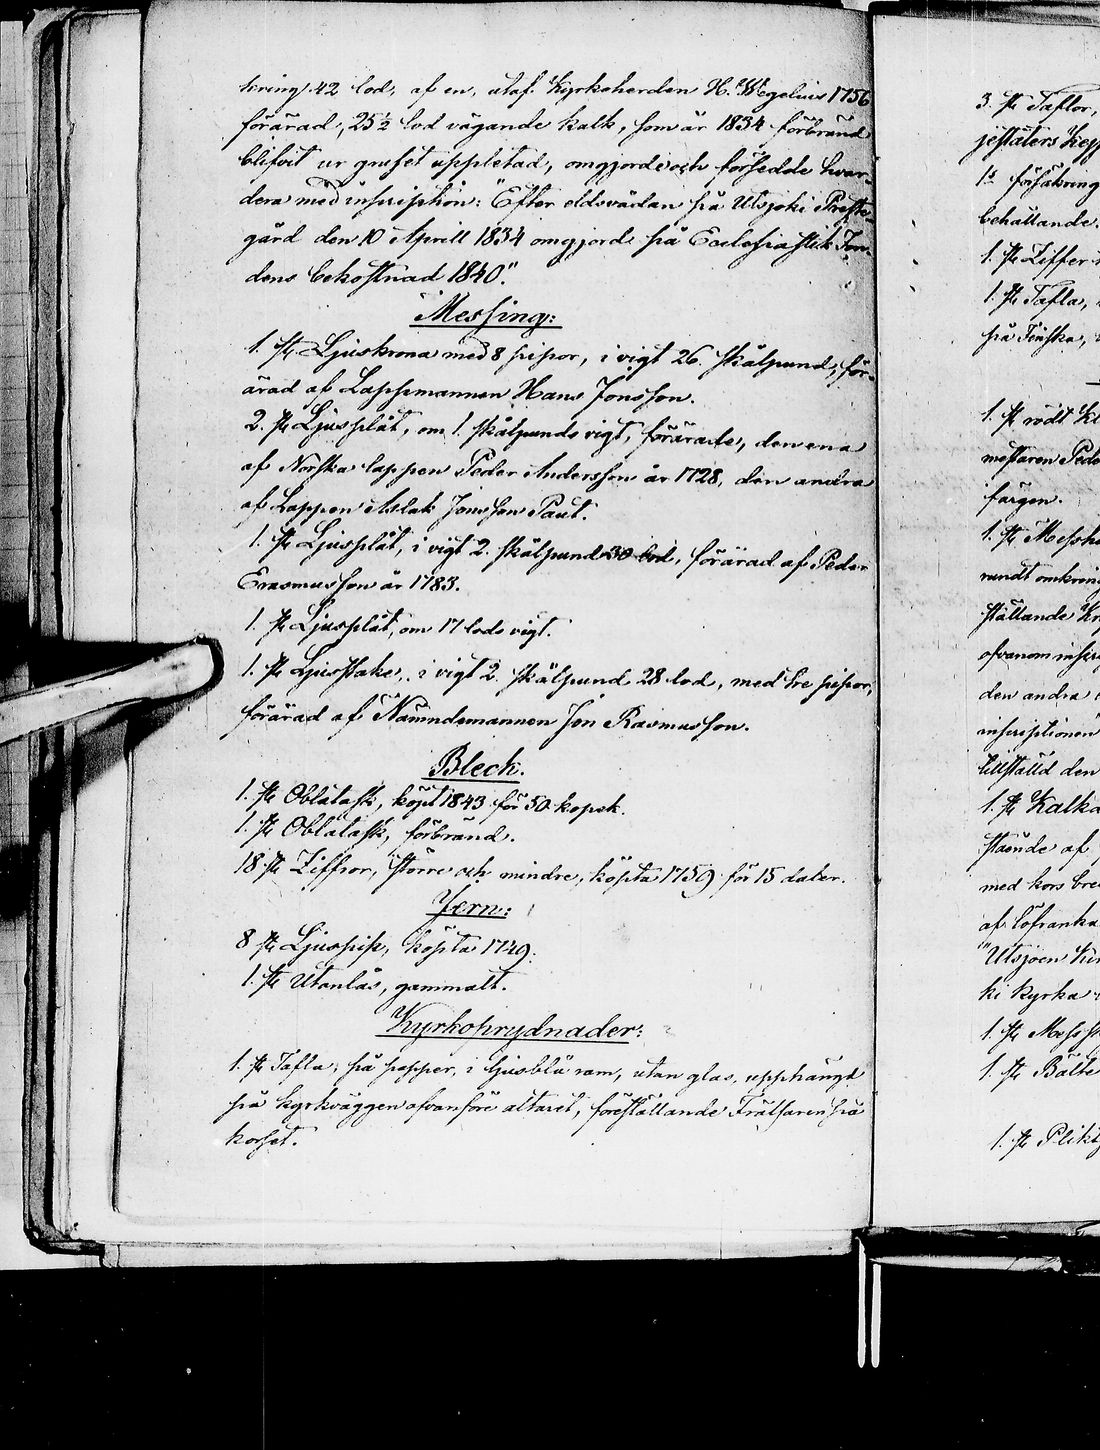 kring 42 lod, af en, utaf Kyrkoherden H. Wegelius 1756
förärad, 25½ lod vägande kalk, som år 1834 förbränd
blifvit ur gruset uppletad, omgjorde och försedde hvar-
dera med inscription: "Efter eldsvådan på Utsjoki Preste-
gård den 10 Aprill 1834 omgjord på Ecclesiastik Fon-
dens bekostnad 1840".
Messing:
1. st. Ljuskrona med 8 pipor, i vigt 26. skålpund, för-
ärad af Lappmannen Hans Jonsson.
2. st. Ljusplåt, om 1. skålpunds vigt, förärade, den ena
af Norska lappen Peder Andersson år 1728, den andra
af Lappen Aslak Jonsson Paut.
1. st. Ljusplåt, i vigt 2. skålpund 30 lod, förärad af Peder
Erasmusson år 1783.
1. st. Ljusplåt, om 17 lods vigt.
1. st. Ljusstake, i vigt 2. skålpund 28 lod, med tre pipor,
förärad af Nämndemannen Jon Rasmusson.
Bleck.
1. st. Oblatask, köpt 1843 för 50 kopek.
1. st. Oblatask, förbränd.
18 st. Ziffror, större och mindre, köpta 1759 för 15 daler.
Jern:
8 st. Ljuspip, köpta 1749.
1. st. Utanlås, gammalt.
Kyrkoprydnader:
1. st. Tafla, på papper, i ljusblå ram, utan glas, upphängd
på kyrkväggen ofvanföre altaret, föreställande Frälsaren på
korset.
3. st. Taflor,
jestäters
1s försäkring
behållande.
1. st. Ziffer
1. st. Tafla,
på Finska,
1. st. rödt
mestaren
färgen.
1. st.
rundt omkring
ställande
ofvanom
den andra
inscriptionen
tillställd den
1. st. Kalk
stående af
med kors
af
"Utsjoen
ki kyrka
1. st. Mess
1. st. Bälte
1. st. Plikt